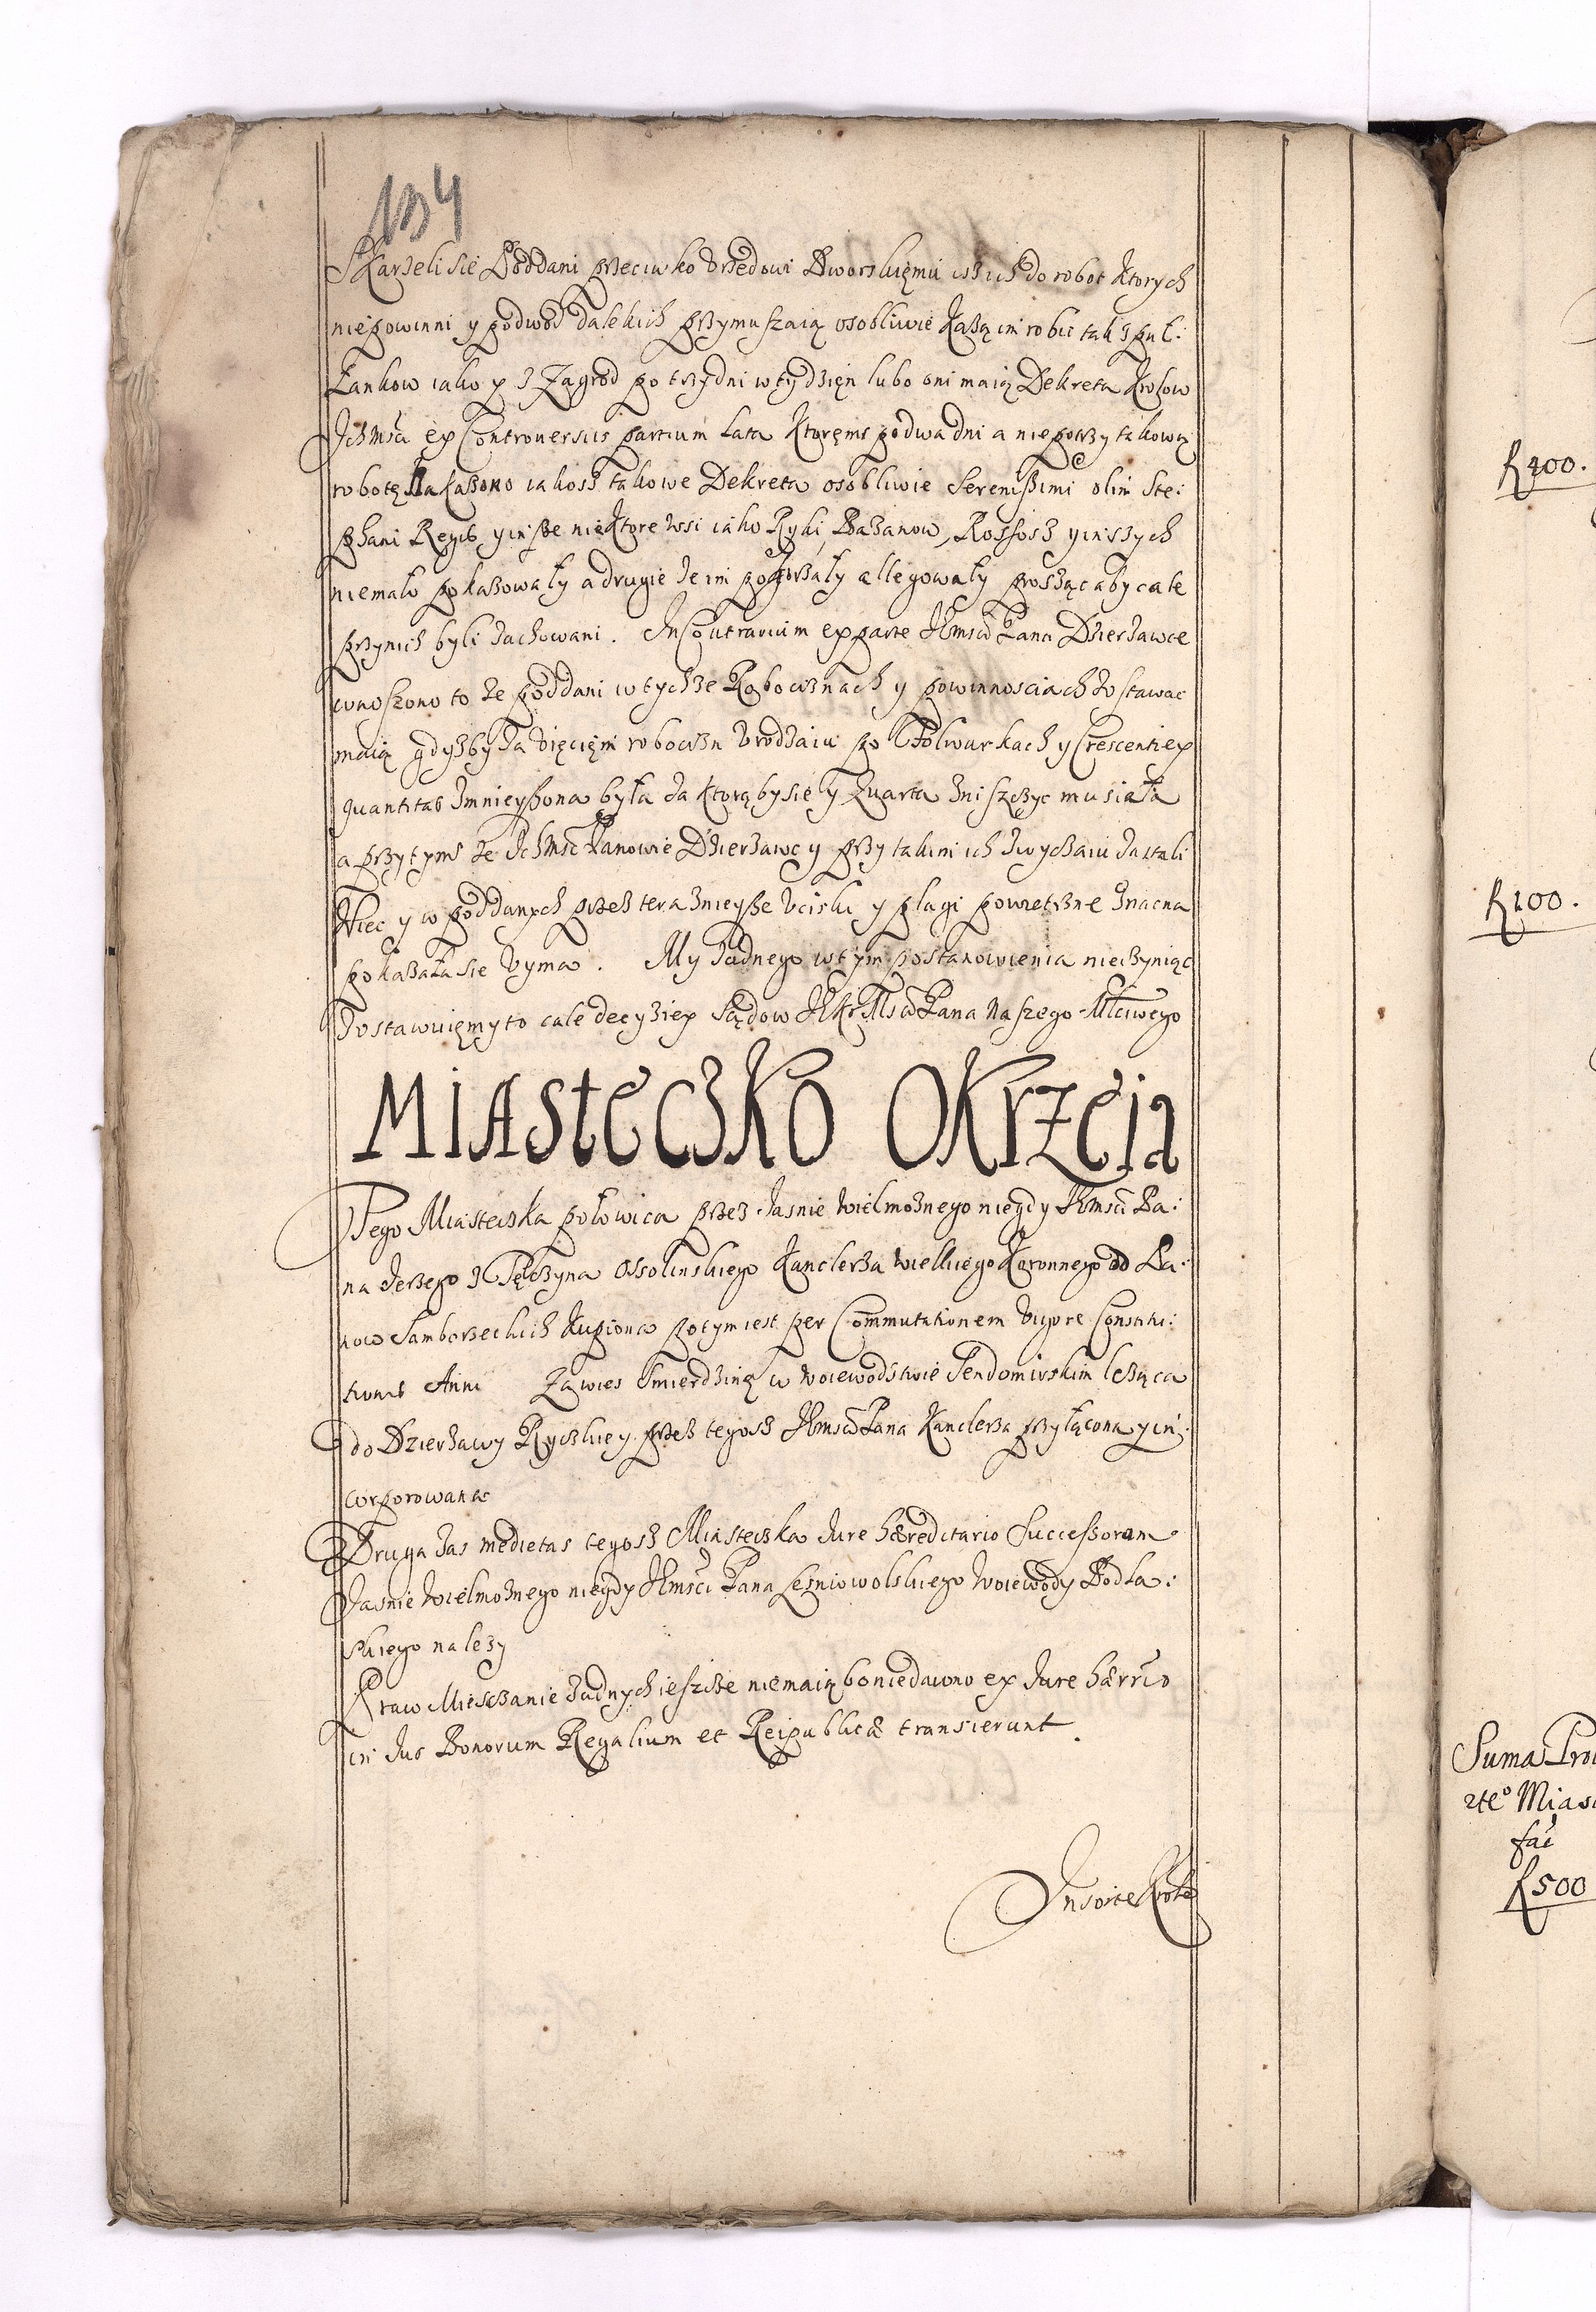 134
Skarzeli sie Poddani przeciwko Vrzedowi Dworskięmu isz ich do robot ktorych
niepowinni y podwod dalekich przymuszaią osobliwie każą im robic tak z puł:
Łankow iako y z Zagrod po trzy dni w tydzięn lubo oni maią Dekreta Krolow
Ichmść ex Controversiis partium lata ktoręmi po dwa dni a nie po trzy takową
robotę Nakazono iakosz takowe Dekreta osobliwie Serenissimi olim Ste:
phani Regis y insze niektore wsi iako Ryki, Bazanow, Rossosz y inszych
niemało pokazowały a drugie że im pogorzały allegowały prosząc aby cale
przy nich byli zachowani. In Contrarium ex parte Jhmsci Pana Dzierzawce
wnoszono to że poddani w tychze Robociznach y powinnosciach zostawac
maią gdyszby za vięcięm robocizn vrodzaiu po Folwarkach y Crescentiey
quantitas zmnieyszona była za ktorą by sie y Quarta zniszczyc musiała
a przytym że Ichmść Panowie Dzierzawcy przy takim ich zwyczaiu zastali
Wiec y w poddanych przez teraznieysze vciski y plagi powietrzne znaczna
pokazała sie vyma. My żadnego w tym postanowienia nieczyniąc
zostawuięmy to cale decyziey Sądow JKr Msci Pana Naszego Młciwego
MIASTECZKO OKRZEIA
Tego Miasteczka połowica przez Jasnie Wielmoznego niegdy Jhmsci Pa:
na Jerzego z Tęczyna Ossolinskiego Kanclerza Wielkiego Koronnego od Pa:
now Samborzeckich kupiona potym iest per Commutationem vigore Constitu:
tionis Anni Za wies Smierdziną w Woiewodstwie Sendomirskim lezącą
do Dzierzawy Ryczkiey przez tegosz Jhmsci Pana Kanclerza przyłączona y in:
corporowana
Druga zas medietas tegosz Miasteczka Jure hæreditario Successorom
Jasnie Wielmoznego niegdy Jhmsci Pana Lesniowolskiego Woiewody Podla:
skiego nalezy
Praw Miesczanie żadnych ieszcze niemaią bo niedawno ex Jure hærrio
in Jus Bonorum Regalium et Reipublicæ transierunt.
R 400.
R 100.
2teo
fac
R 500